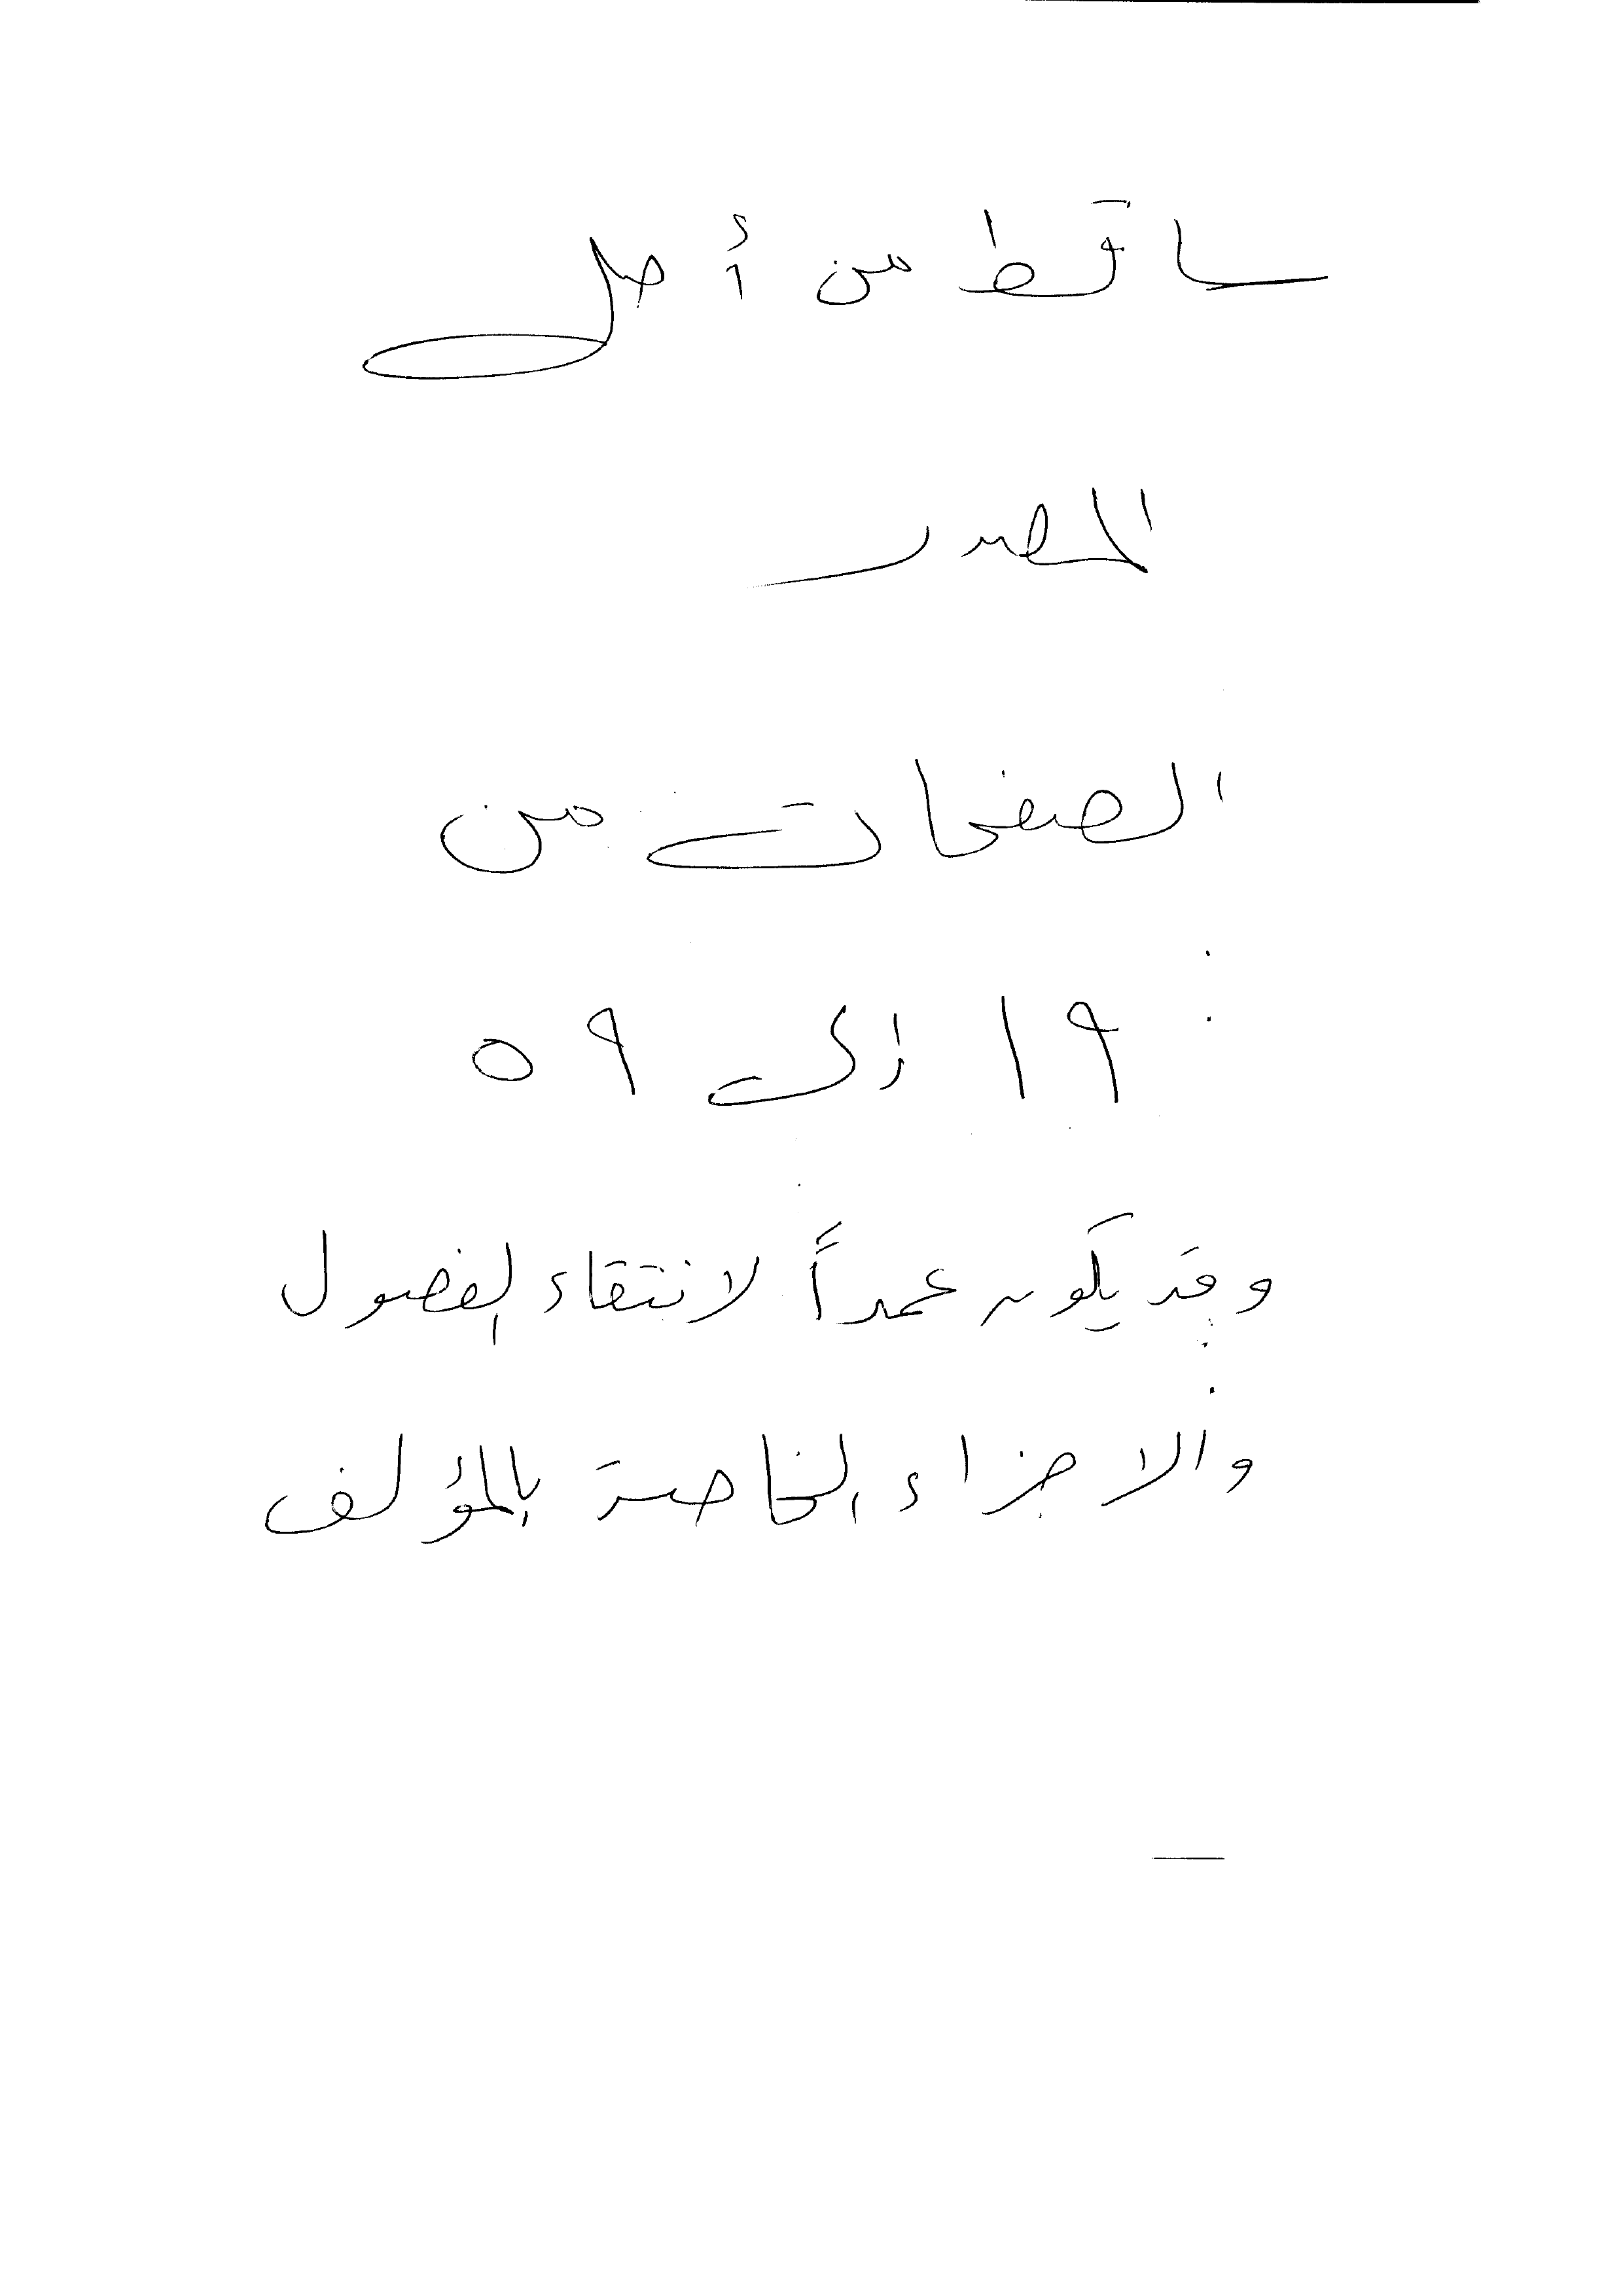 ساقط من أصل
المصدر
الصفحات من
١٩ إلى ٥٩
وقد يكون عمداً لانتقاء الفصول
والاجزاء الخاصة بالمؤلف